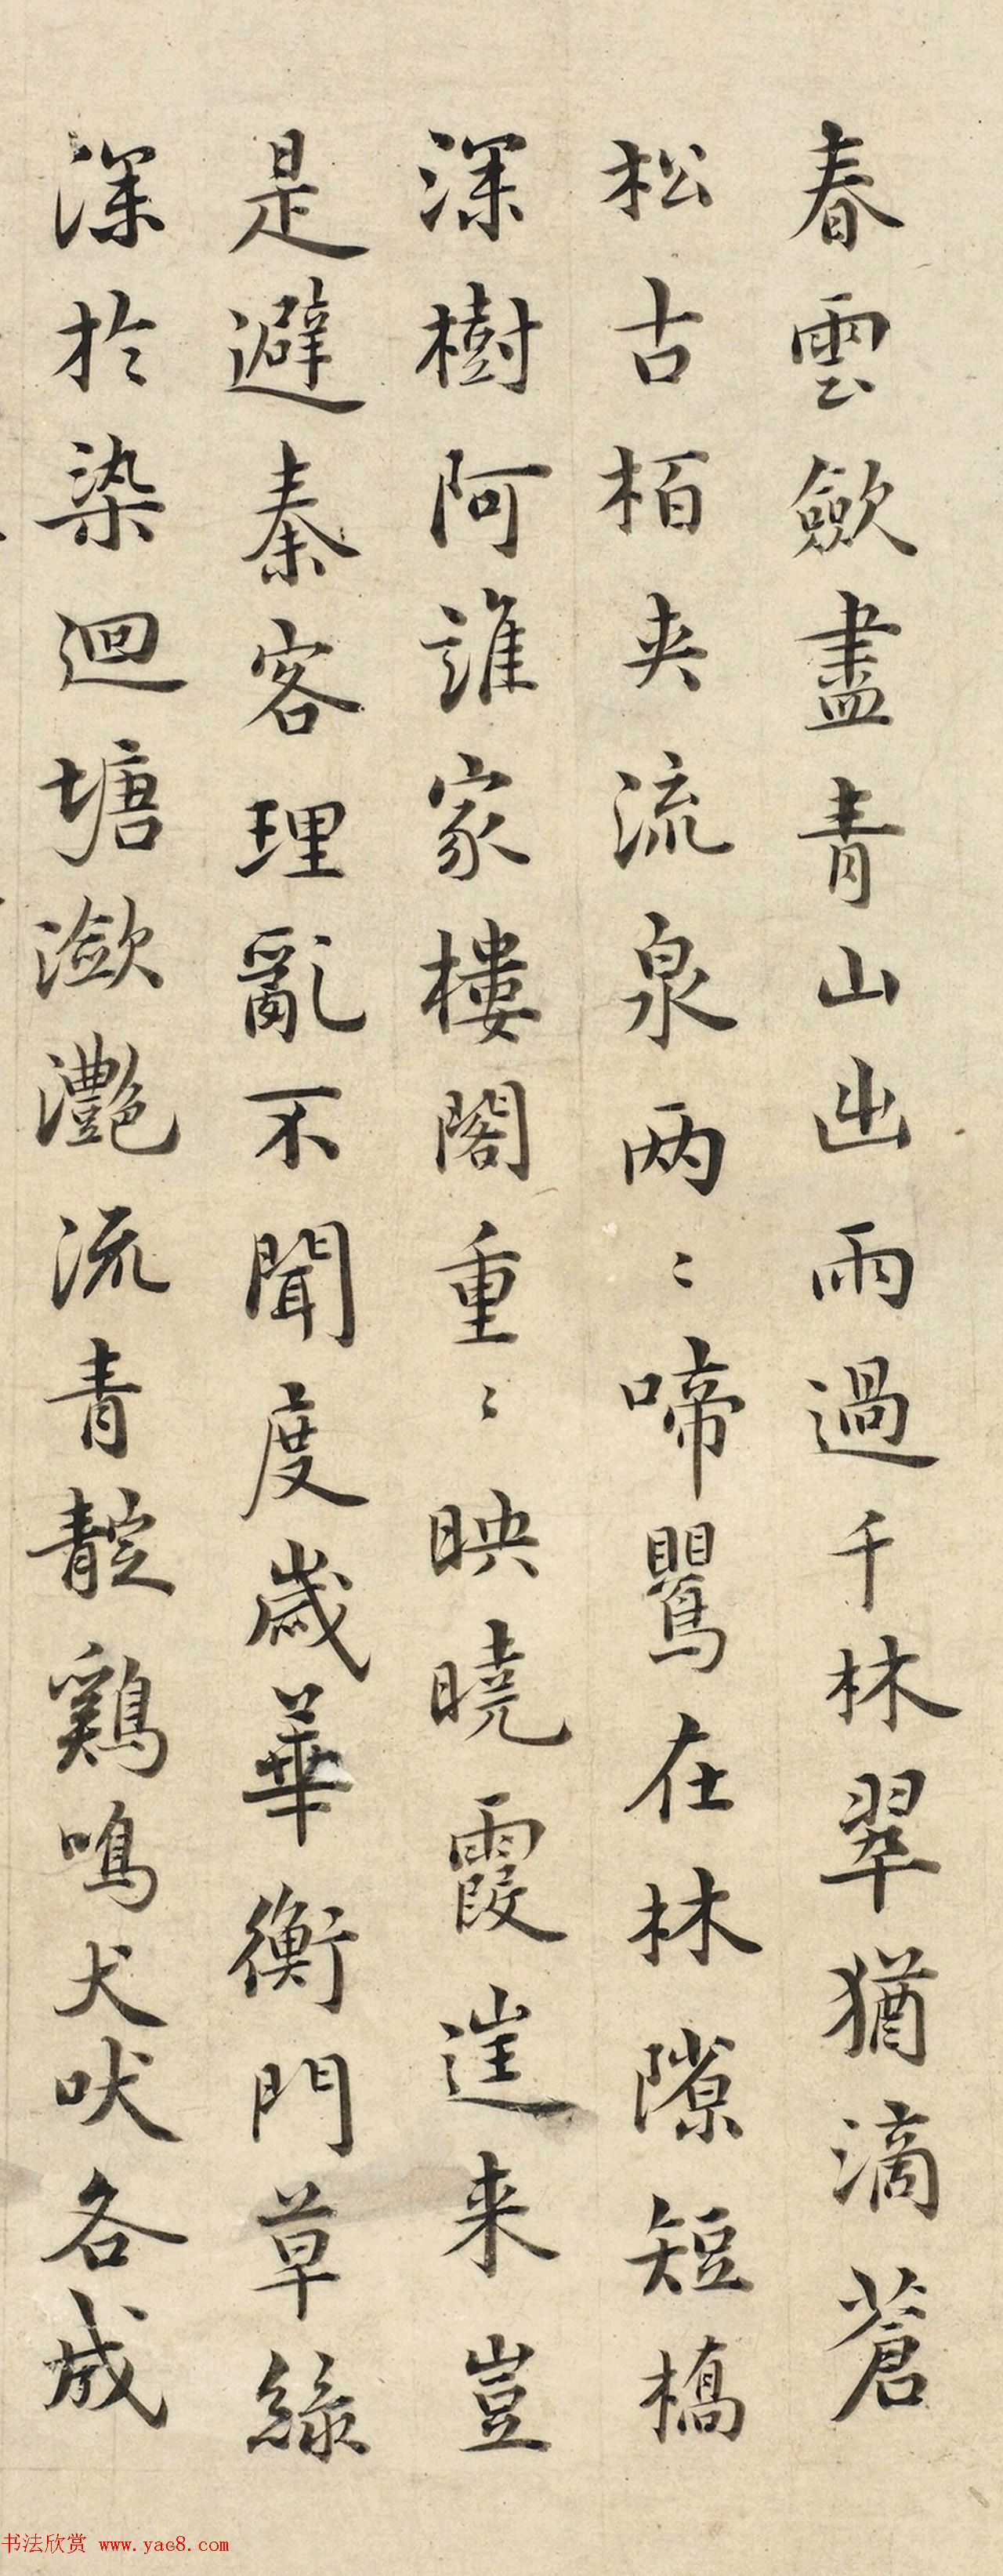 春雲歛盡青山出雨過千林翠猶滴蒼
松古栢夹流泉两〻啼鸎在林隙短橋
深樹阿誰家樓閣重〻映曉霞遅来豈
是避秦客理亂不聞度歲華衡門草綠
深於染迴塘瀲灧流青靛鷄鳴犬吠各成
书法欣赏 www.yac8.com